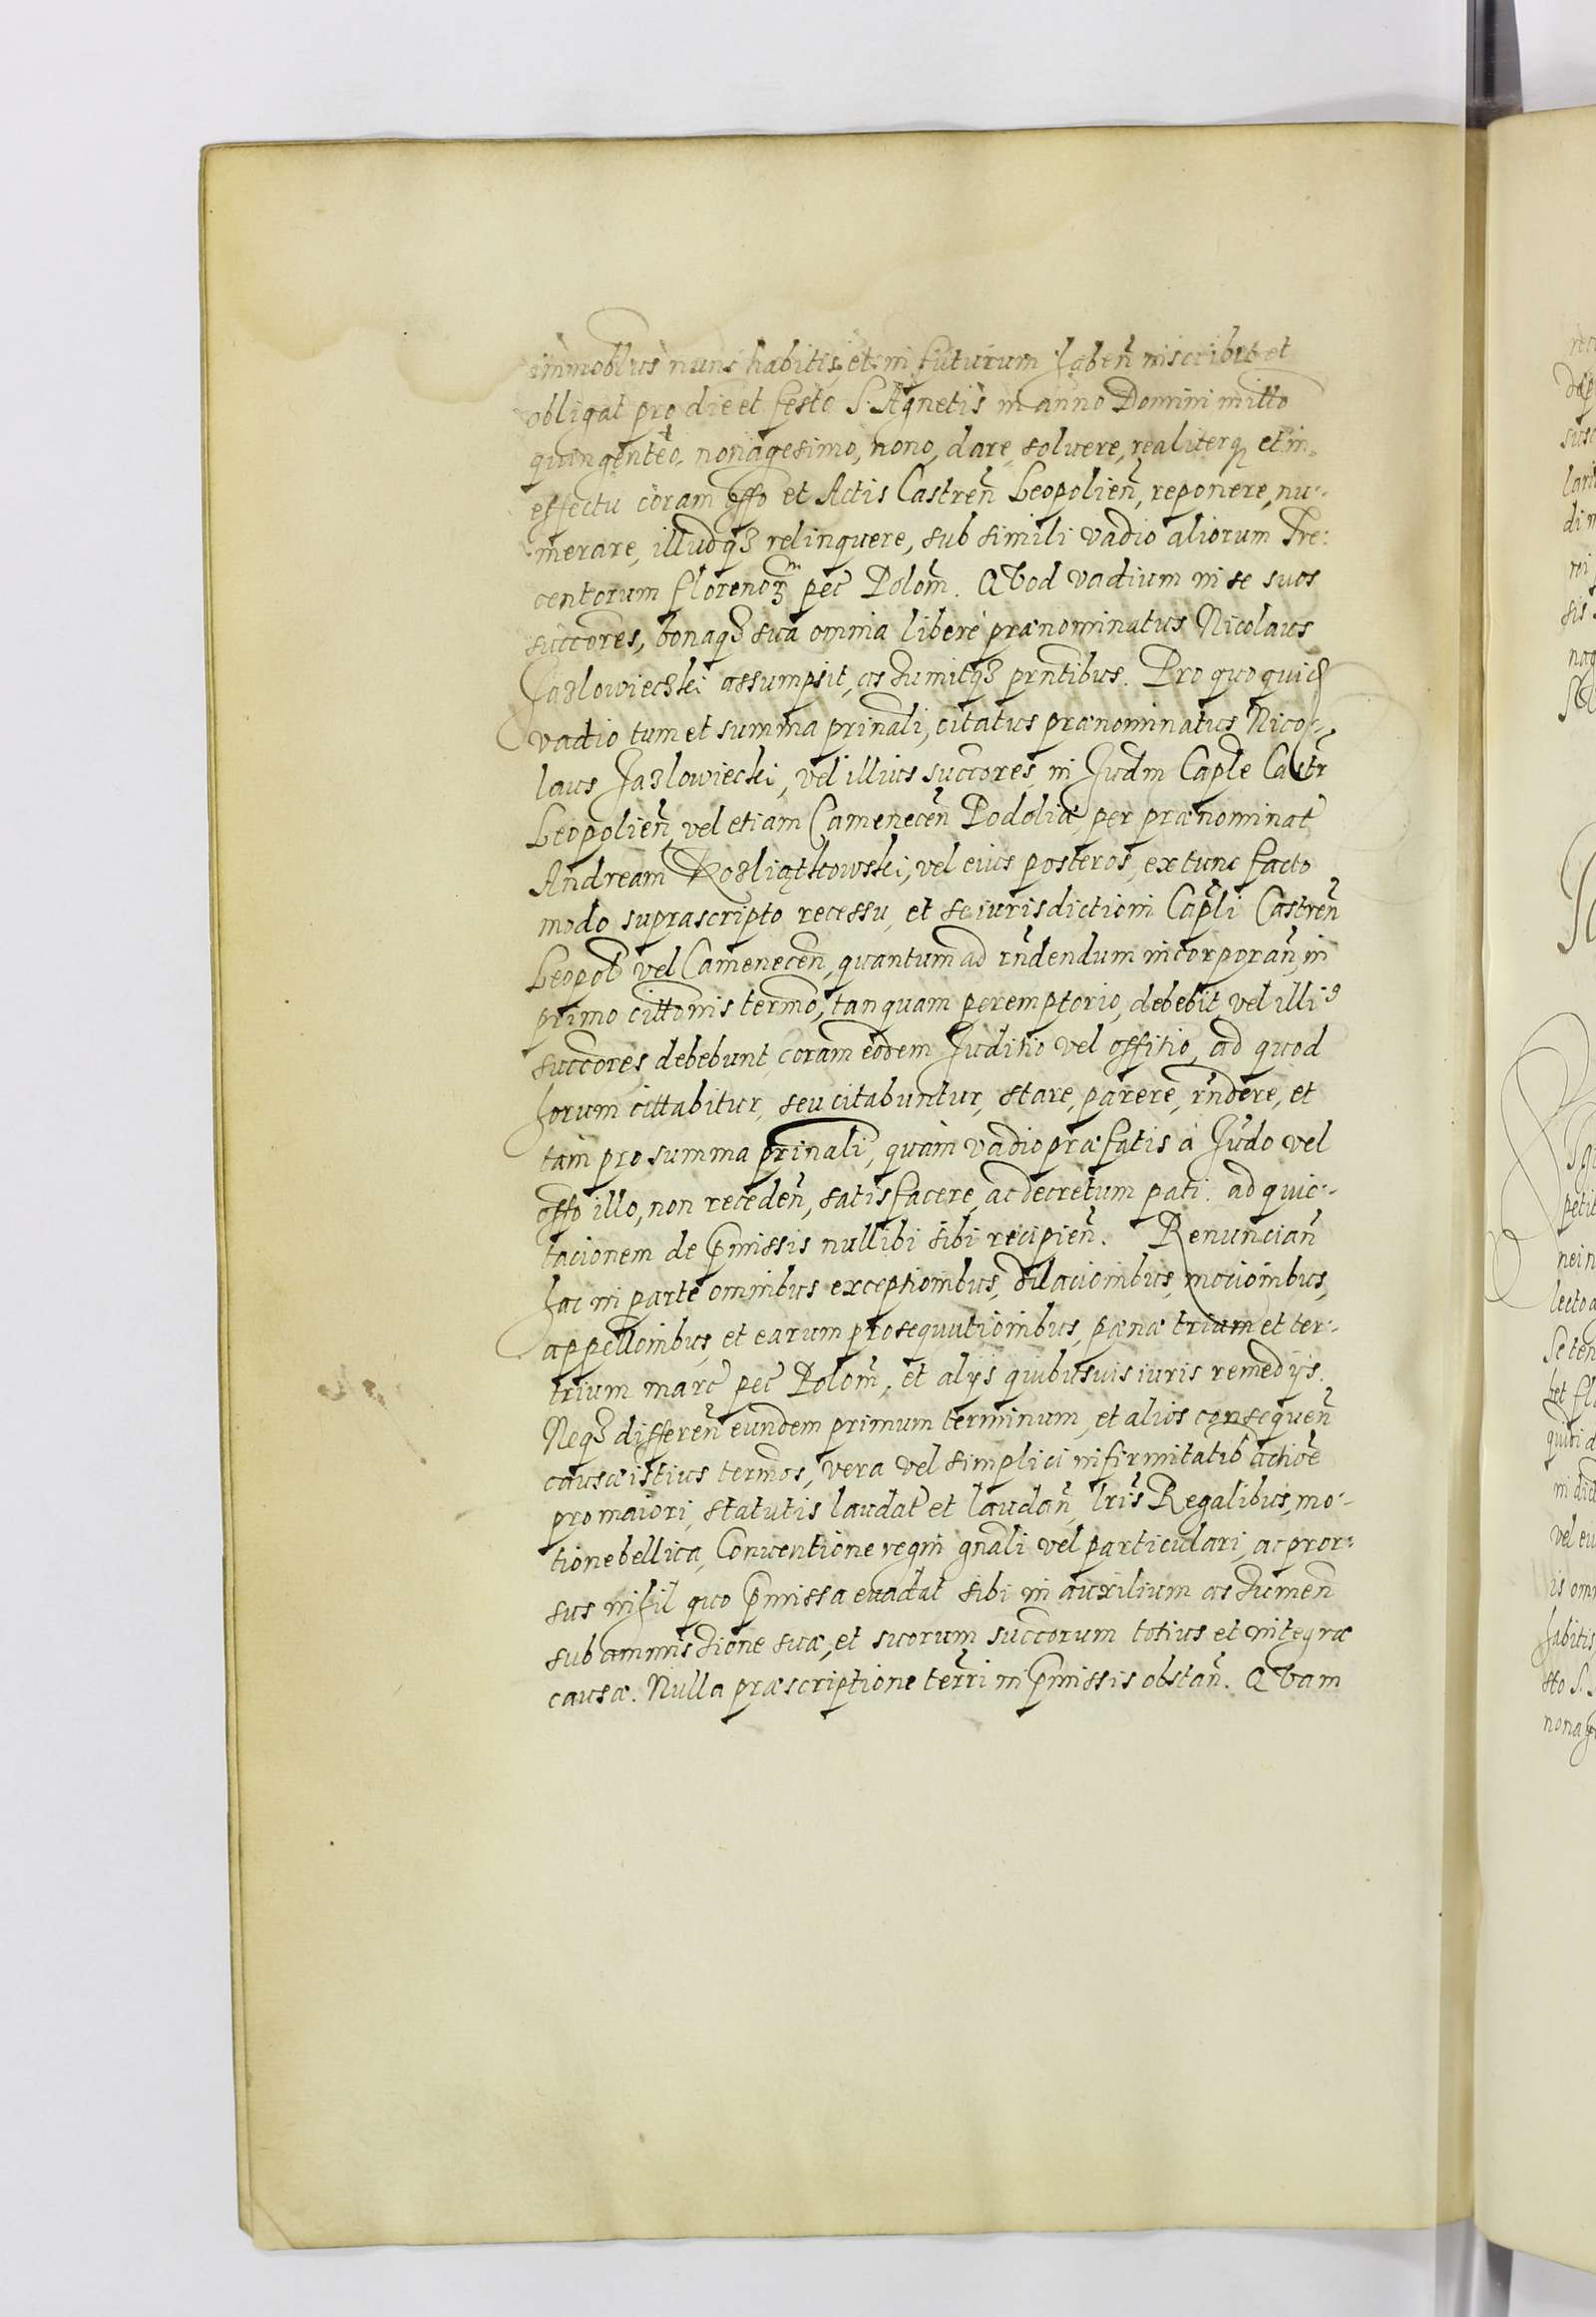 immoblius nunc habitis, et in futurum haben̄ inscribit et
obligat pro die et festo S. Agnetis in anno Domini millo
quingenteo, nonagesimo, nono, dare, soluere, realiterq et in
effectu coram offo et Actis Castren̄ Leopolien̄, reponere, nu-
merare, illudq3 relinquere, sub simili vadio aliorum Tre-
centorum floreno3 pec Polom̄. Quod vadium in se suos
succores, bonaq3 sua omnia libere prænominatus Nicolaus
Jazlowieczki assumpsit, assumitq3 prntibus. Pro quo quid
vadio tum et summa prinali, citatus prænominatus Nico-
laus Jazlowiecki, vel illius succores, in Judm Caple Castr
Leopolien̄, vel etiam Camenecen̄ Podoliæ, per prænominat
Andream Rozliątkowski, vel eius posteros, ex tunc facto
modo suprascripto recessu, et se iurisdictioni Capli Castren̄
Leopol vel Camenecen̄, quantum ad rn̄dendum incorporan̄, in
primo cittonis termo, tanquam peremptorio, debebit, vel illi9
succores debebunt, coram eodem Juditio vel offitio, ad quod
horum cittabitur, seu citabuntur, stare, parere, rn̄dere, et
tam pro summa prinali, quam vadio præfatis a Judo vel
offo illo, non receden̄, satisfacere, ac decretum pati. ad quic-
tacionem de pmissis nullibi sibi recipien̄. Renuncian̄
hac in parte omnibus exceptionibus, dilacionibus, mocionibus,
appellonibus, et earum prosequutionibus, pænæ trium et ter-
trium marc pec Polom̄, et alijs quibusuis iuris remedijs.
Neq3 differen̄ eundem primum terminum, et alios consequen̄
causæ istius termos, vera vel simplici infirmitatib actioē
pro maiori, statutis laudat et laudan̄, lris Regalibus, mo-
tione bellica, Conuentione regni gnali vel particulari, ac pror-
sus nihil quo pmissa euadat sibi in auxilium assumen̄
sub ammissione suæ, et suorum succorum totius et integræ
causæ. Nulla præscriptione terri in pmissis obstan̄. Quam